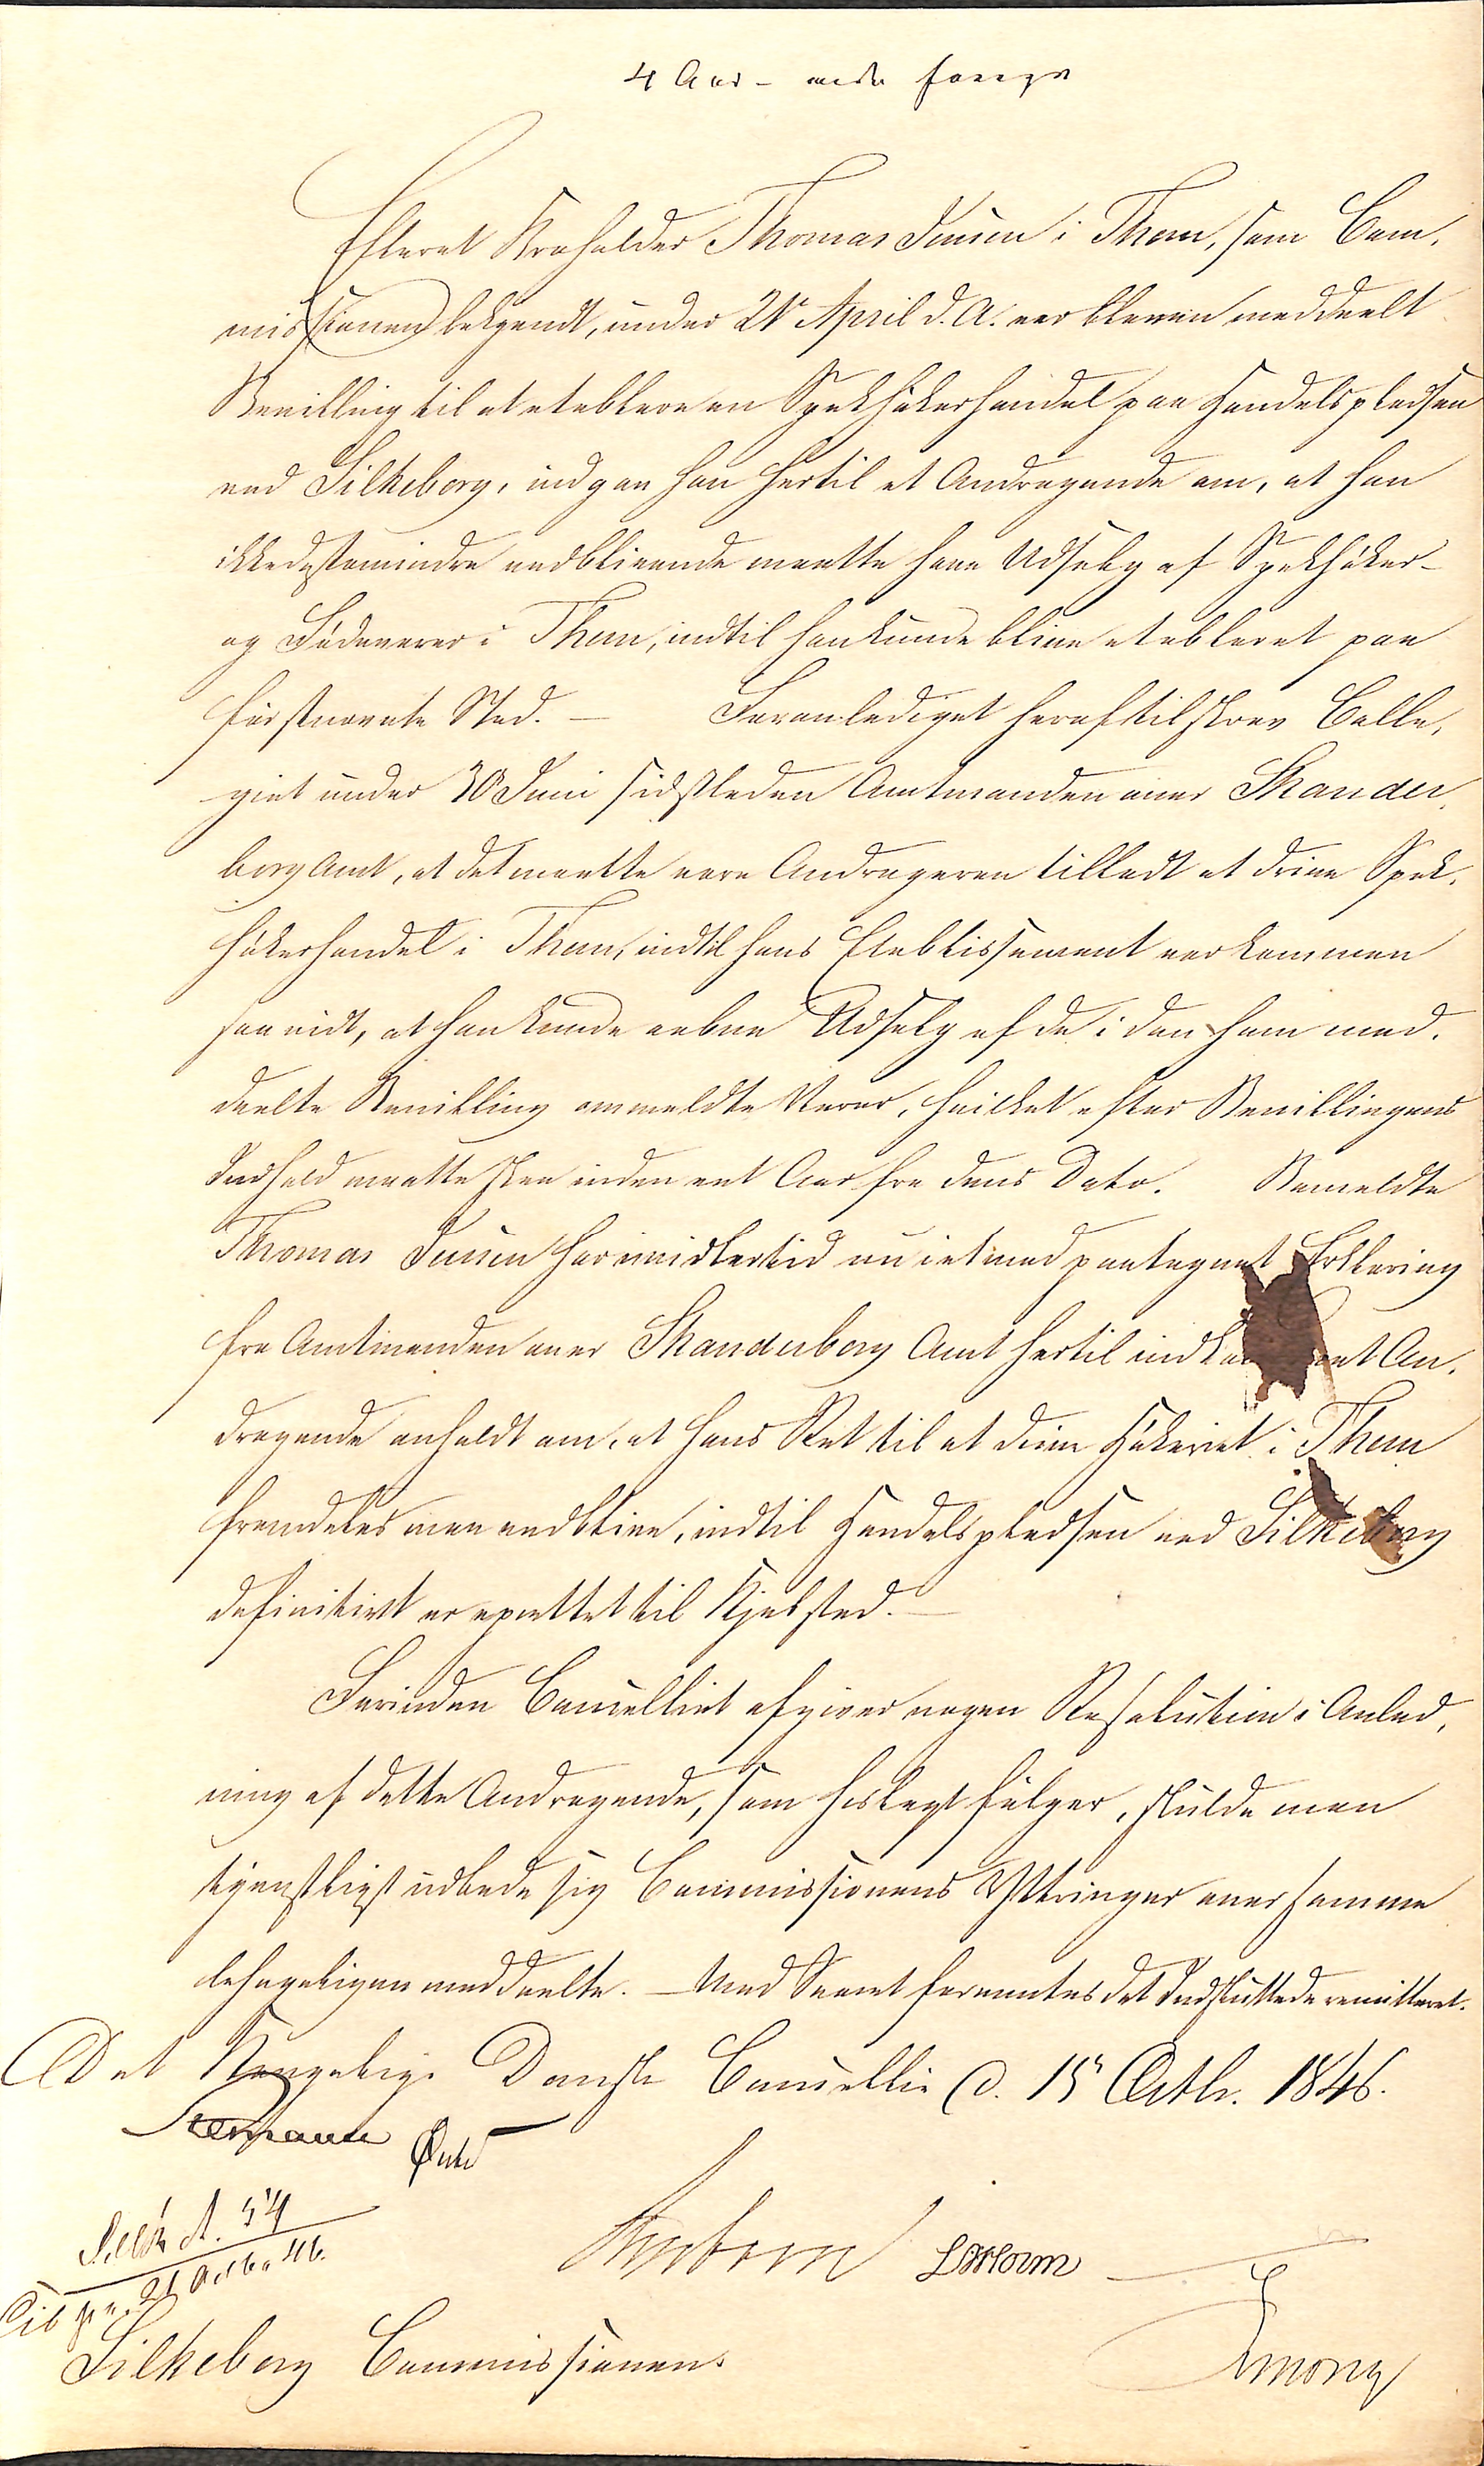 4 Aar -
Efterat Kroholder Thomas Jensen i Them, som Com-
missionen bekjendt, under 21 April d. A. var bleven meddeelt
Bevilling til at etablere en Spekhökerhandel paa Handelspladsen
ved Silkeborg, indgav han hertil et Andragende om, at han
ikkedestomindre vedblivende maatte have Udsalg af Spekhöker-
og Fødevarer i Them, indtil han kunde blive etableret paa
förstnævnte Sted. — Foranlediget heraf tilskrev Colle-
giet under 30 Juni sidstleden Amtmanden over Skander-
borg Amt, at det maatte være Andrageren tilladt at drive Spek-
hökerhandel i Them, indtil hans Etablissement var kommen
saavidt, at han kunde aabne Udsalg af de i den ham med-
deelte Bevilling ommeldte Varer, hvilket efter Bevillingens
Indhold maatte skee inden eet Aar fra dens Dato. Bemeldte
Thomas Jensen har imidlertid nu i et med paategnet Erklæring
fra Amtmanden over Skanderborg Amt hertil An-
dragende anholdt om, at hans Ret til at drive Hökeriet i Them
fremdeles maa vedblive, indtil Handelspladsen ved Silkeborg
definitivt er oprettet til Kjøbsted. —
Forinden Cancelliet afgiver nogen Resolution i Anled-
ning af dette Andragende, som hoslagt fölger, skulde man
tjenstligst udbede sig Commissionens Yttringer over samme
behageligen meddeelte. — Med Svaret forventes det Indsluttede remitteret.
Det Kongelige Danske Cancellie d. 15 Octbr. 1846.
Stemann Ørsted
Lassen
21 Octbr. 46.
Silkeborg Commissionen.